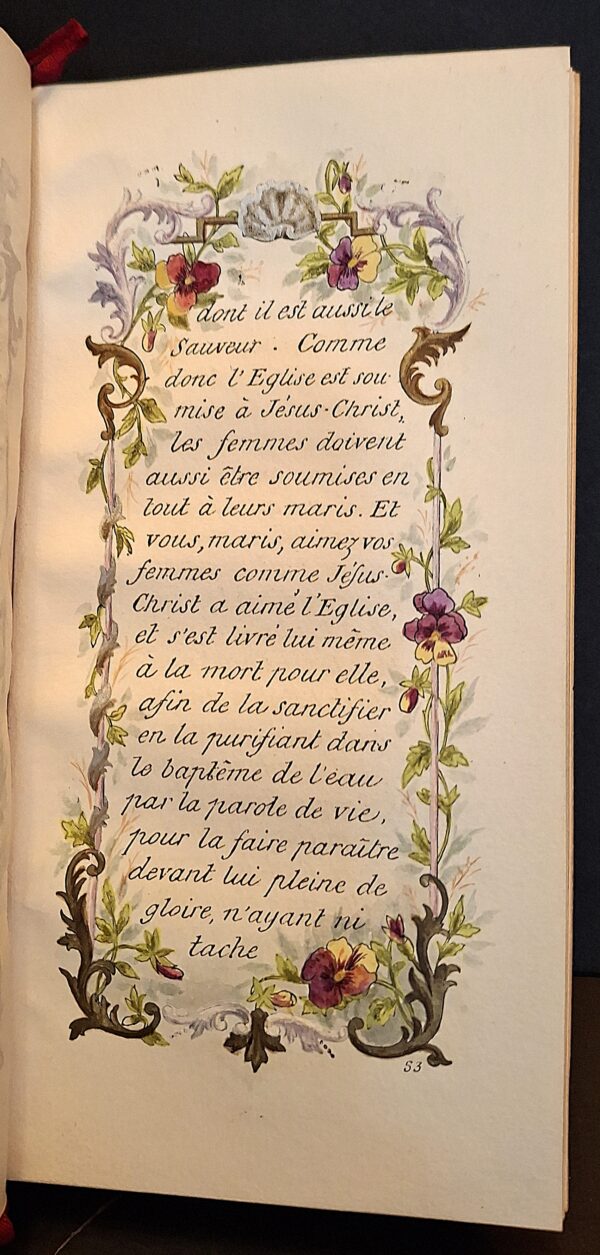 dont il est aussi le
Sauveur . Comme
donc l'Eglise est sou-
mise à Jésus-Christ,
les femmes doivent
aussi être soumises en
tout à leurs maris. Et
vous, maris, aimez vos
femmes comme Jésus-
Christ a aimé l'Eglise,
et s'est livré lui même
à la mort pour elle,
afin de la sanctifier
en la purifiant dans
le baptême de l'eau
par la parole de vie,
pour la faire paraître
devant lui pleine de
gloire, n'ayant ni
tache
53